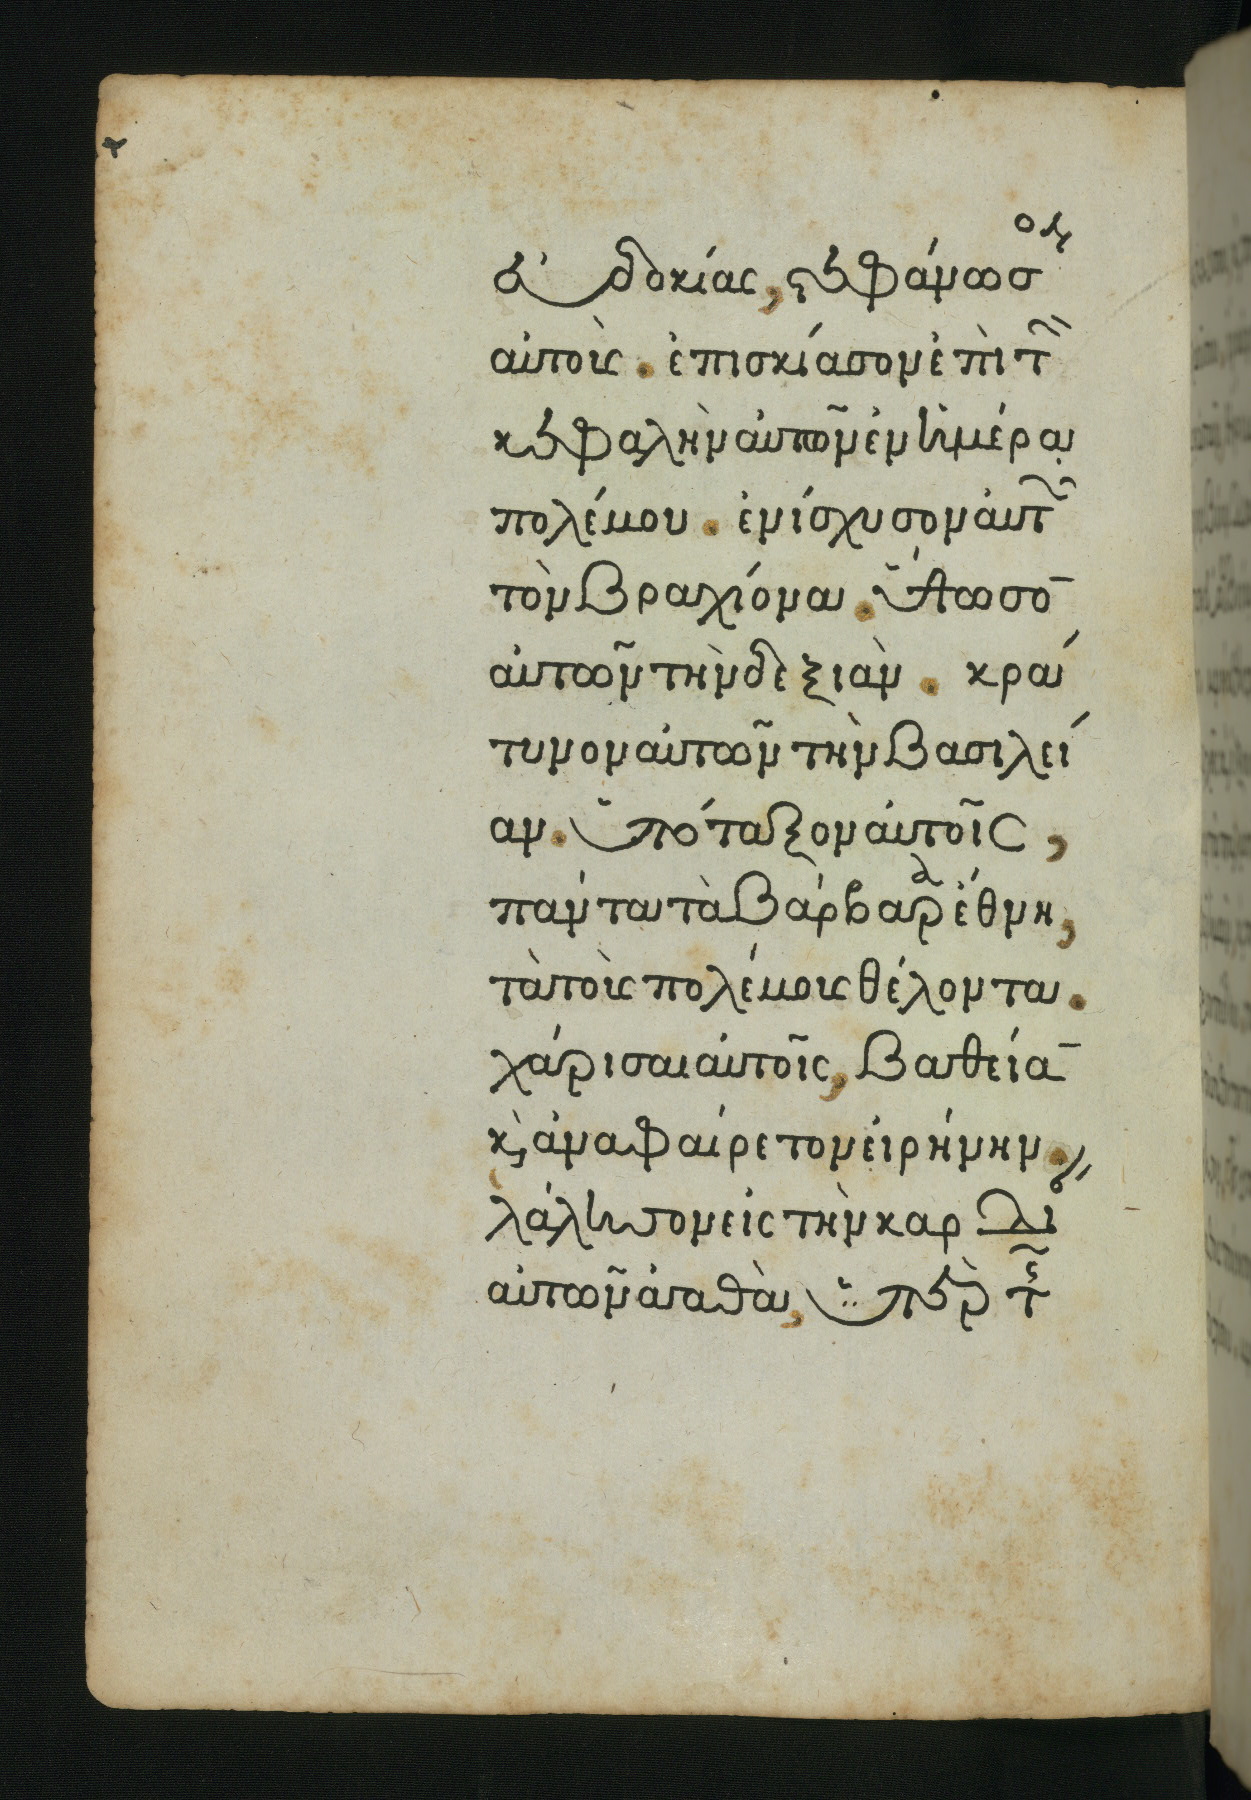 εὐδοκίας, στεφάνωσον
αὐτοὺς. ἐπισκίασον ἐπὶ τὴν
κεφαλὴν αὐτῶν ἐν ἡμέρα
πολέμου. ἐνίσχυσον αὐτῶν
τὸν βραχίονα. ὕψωσον
αὐτῶν τὴν δεξιὰν. κρά
τυνον αὐτῶν τὴν βασιλεί
αν. ὑπόταξον αὐτοῖς,
πάντα τὰ βάρβαρα ἔθνη,
τὰ τοὺς πολέμους θέλοντα.
χάρισαι αὐτοῖς, βαθεῖαν
κ̀ ἀναφαίρετον εἰρήνην.
λάλησον εἰς τὴν καρδί
αὐτῶν ἀγαθὰ, ὑπὲρ τῆς